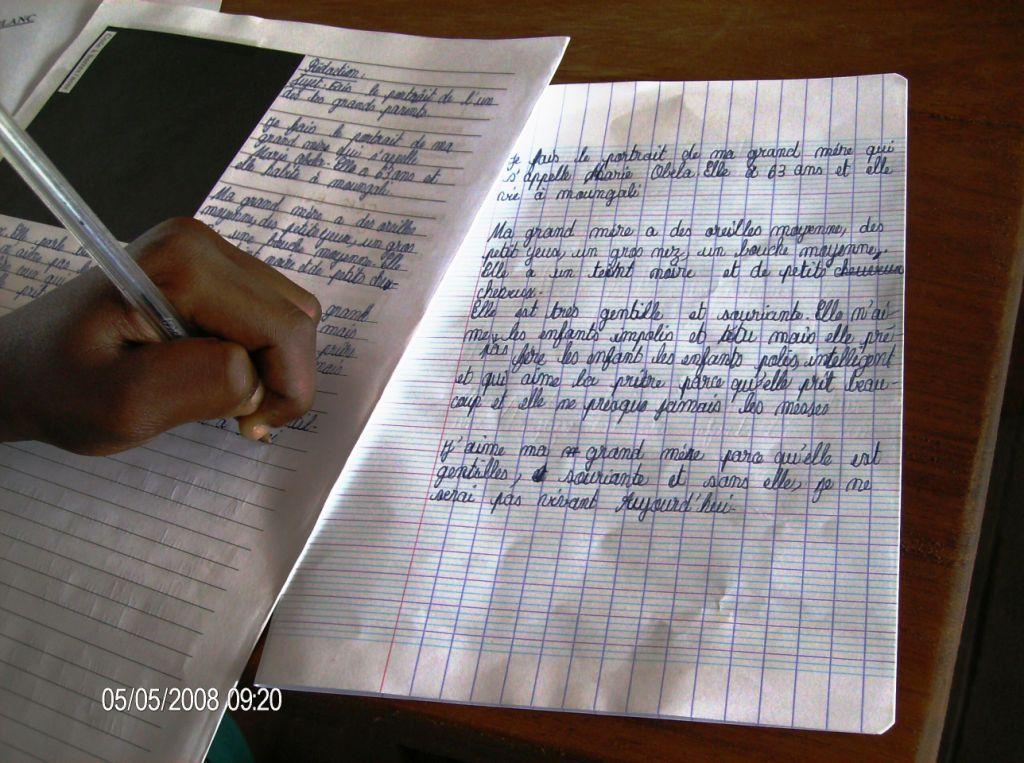 LANC
Rédaction.
Sujet: Fais le portrait de l'un
des tes grands parents.
Je fais le portrait de ma
grand mère qui s'appele
Marie Obela. Elle a 63 ans et
elle habite à moungali.
Ma grand mère a des oreilles
moyenne, des petits yeux, un gros
une bouche moyenne. Elle
petits che-
grand
mais
prière
mais
Je fais le portrait de ma grand mère qui
s'appelle Marie Obela. Elle a 63 ans et elle
vie à moungali
Ma grand mère a des oreilles moyenne, des
petit yeux, un gros nez, un bouche moyenne,
Elle a un teint noire et de petits cheuveux
cheveux.
Elle est très gentille et souriante. Elle n'ai
me, les enfants impolis et têtu mais elle pré
pas fère les enfant les enfants polis, intellegent
et qui aime la prière parce qu'elle prit beau-
coup et elle ne presque jamais les messes
J'aime ma grand mère parce qu'elle est
gentilles, souriante et sans elle, je ne
serai pas vivant Aujourd'hui.
05/05/2008 09:20